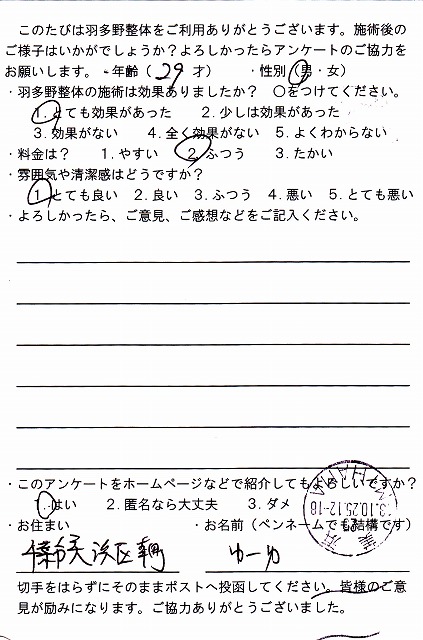 このたびは羽多野整体をご利用ありがとうございます。施術後の
ご様子はいかがでしょうか？よろしかったらアンケートのご協力を
お願いします。・年齢（ 29 才） ・性別（男・女）
・羽多野整体の施術は効果ありましたか？ ○をつけてください。
1.とても効果があった 2.少しは効果があった
3.効果がない 4.全く効果がない 5.よくわからない
・料金は？ 1.やすい 2.ふつう 3.たかい
・雰囲気や清潔感はどうですか？
1.とても良い 2.良い 3.ふつう 4.悪い 5.とても悪い
・よろしかったら、ご意見、ご感想などをご記入ください。
・このアンケートをホームページなどで紹介してもよろしいですか？
1.はい 2.匿名なら大丈夫 3.ダメ
・お住まい ・お名前（ペンネームでも結構です）
区 ゆーゆ
切手をはらずにそのままポストへ投函してください。皆様のご意
見が励みになります。ご協力ありがとうございました。